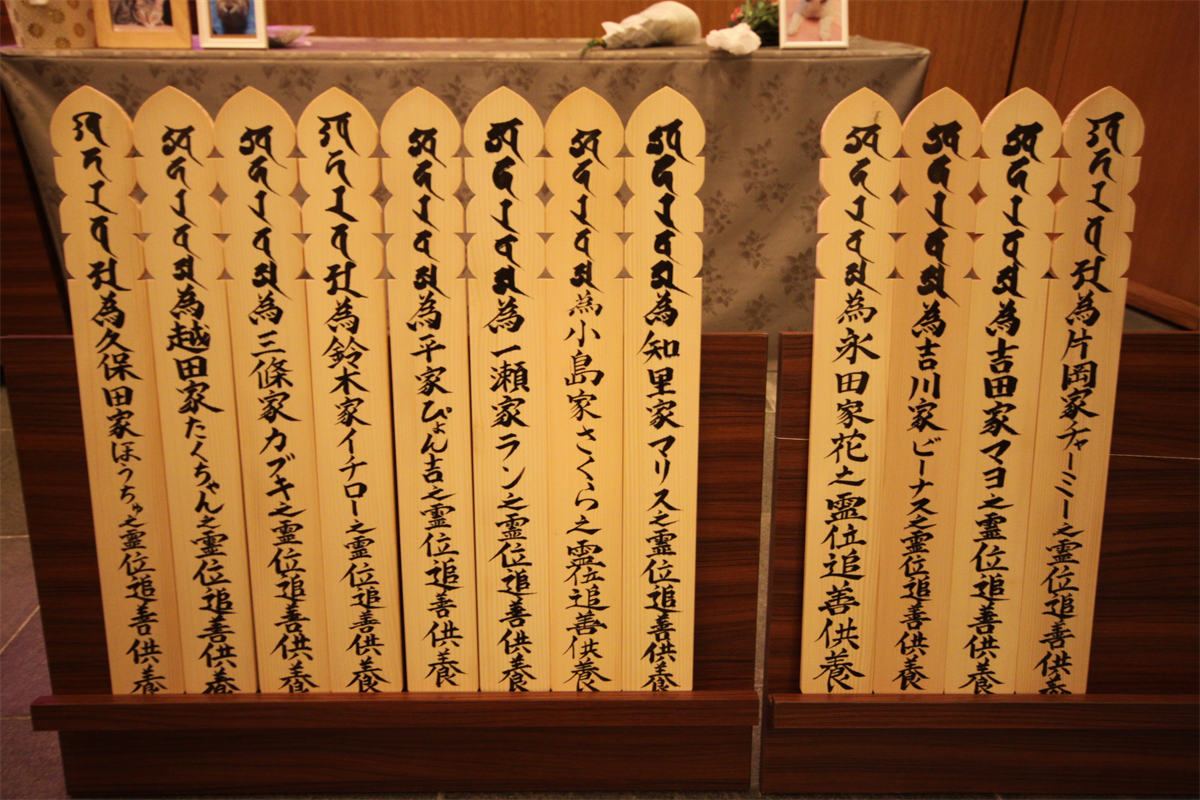 為片岡家チャーミー之霊位追善供養
為吉田家マヨ之霊位追善供養
為吉川家ビーナス之霊位追善供養
為永田家花之霊位追善供養
為知里家マリス之霊位追善供養
為小島家さくら之霊位追善供養
為一瀬家ラン之霊位追善供養
為平家ぴょん吉之霊位追善供養
為鈴木家イチロー之霊位追善供養
為三條家カブキ之霊位追善供養
為越田家たくちゃん之霊位追善供養
為久保田家ほうちゅ之霊位追善供養